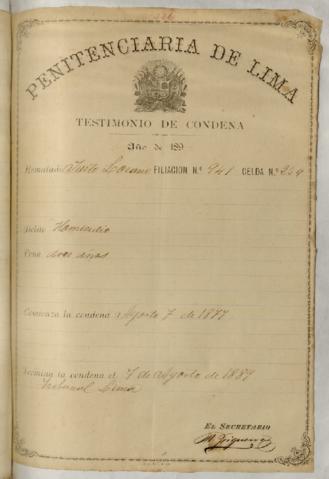 PENITENCIARIA DE LIMA
TESTIMONIO DE CONDENA
Año de 189
Rematado Justo Lozano FILIACION N.º 941 CELDA N.º 254
Delito Homicidio
Pena doce años
Comienza la condena Agosto 7 de 1877
Termina la condena el 7 de Agosto de 1889
Tribunal Lima
EL SECRETARIO